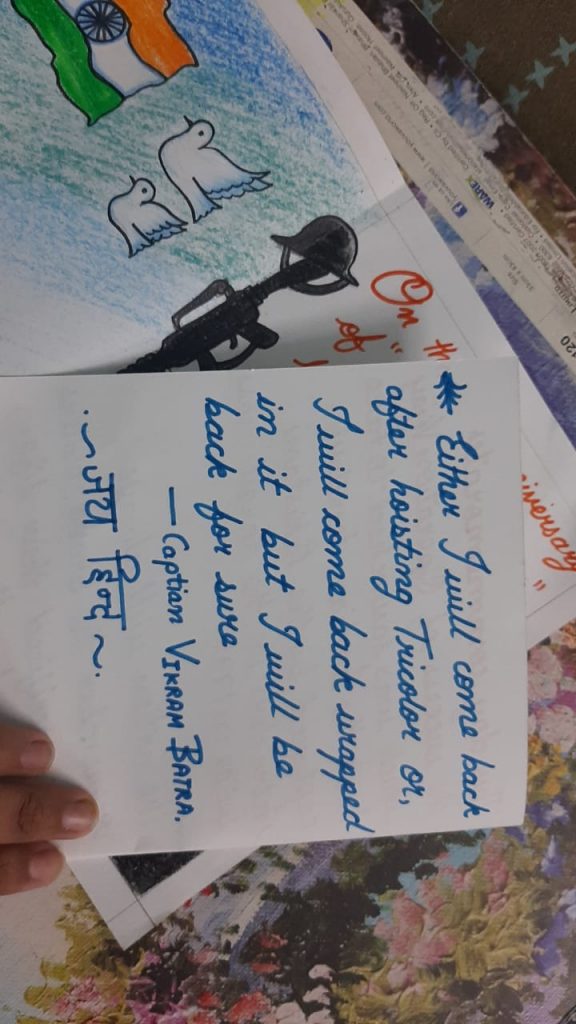 On th
" of
iversary
"
✴ Either I will come back
after hoisting Tricolor or,
I will come back wrapped
in it but I will be
back for sure
— Captian VIKRAM BATRA.
. ~ जय हिन्द ~ .
WARE
120